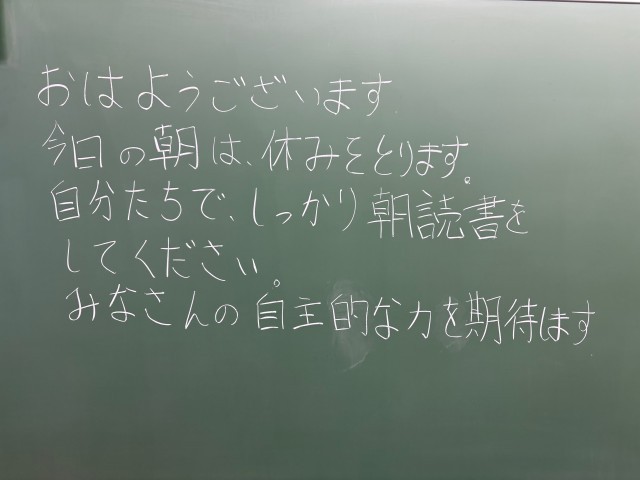 おはようございます.
今日の朝は、休みをとります。
自分たちで、しっかり朝読書を
してください。
みなさんの自主的な力を期待します